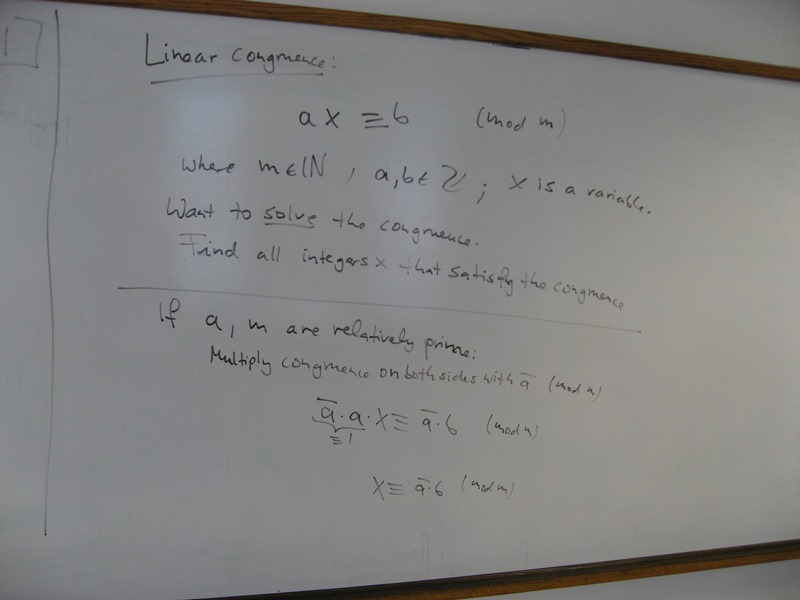 Linear congruence:
a x ≡ b (mod m)
where m ∈ ℕ , a, b ∈ ℤ ; x is a variable.
Want to solve the congruence.
Find all integers x that satisfy the congruence
If a, m are relatively prime:
Multiply congruence on both sides with ā (mod m)
ā · a · x ≡ ā · b (mod m)
≡ 1
x ≡ ā · b (mod m)